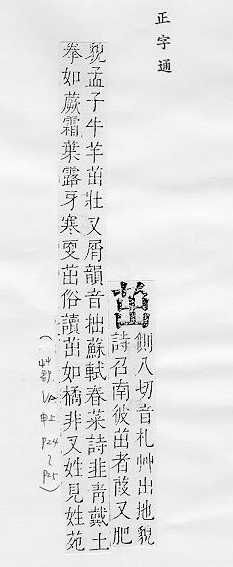 正字通
茁
側八切音札艸出地貌
詩召南彼茁者葭又肥
貌孟子牛羊茁壯又屑韻音拙蘇軾春菜詩韭靑戴土
拳如蕨霜葉露牙寒更茁俗讀茁如橘非又姓見姓苑